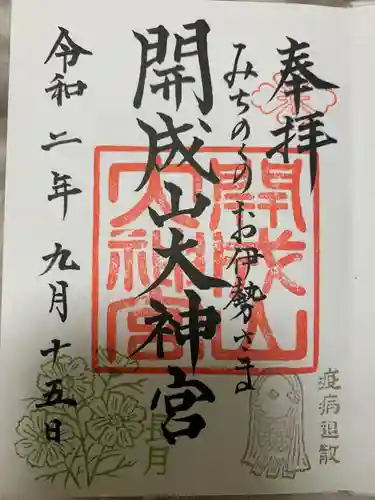 奉拝
みちのくのお伊勢さま
開成山大神宮
令和二年九月十五日
開成山大神宮
疫病退散
長月